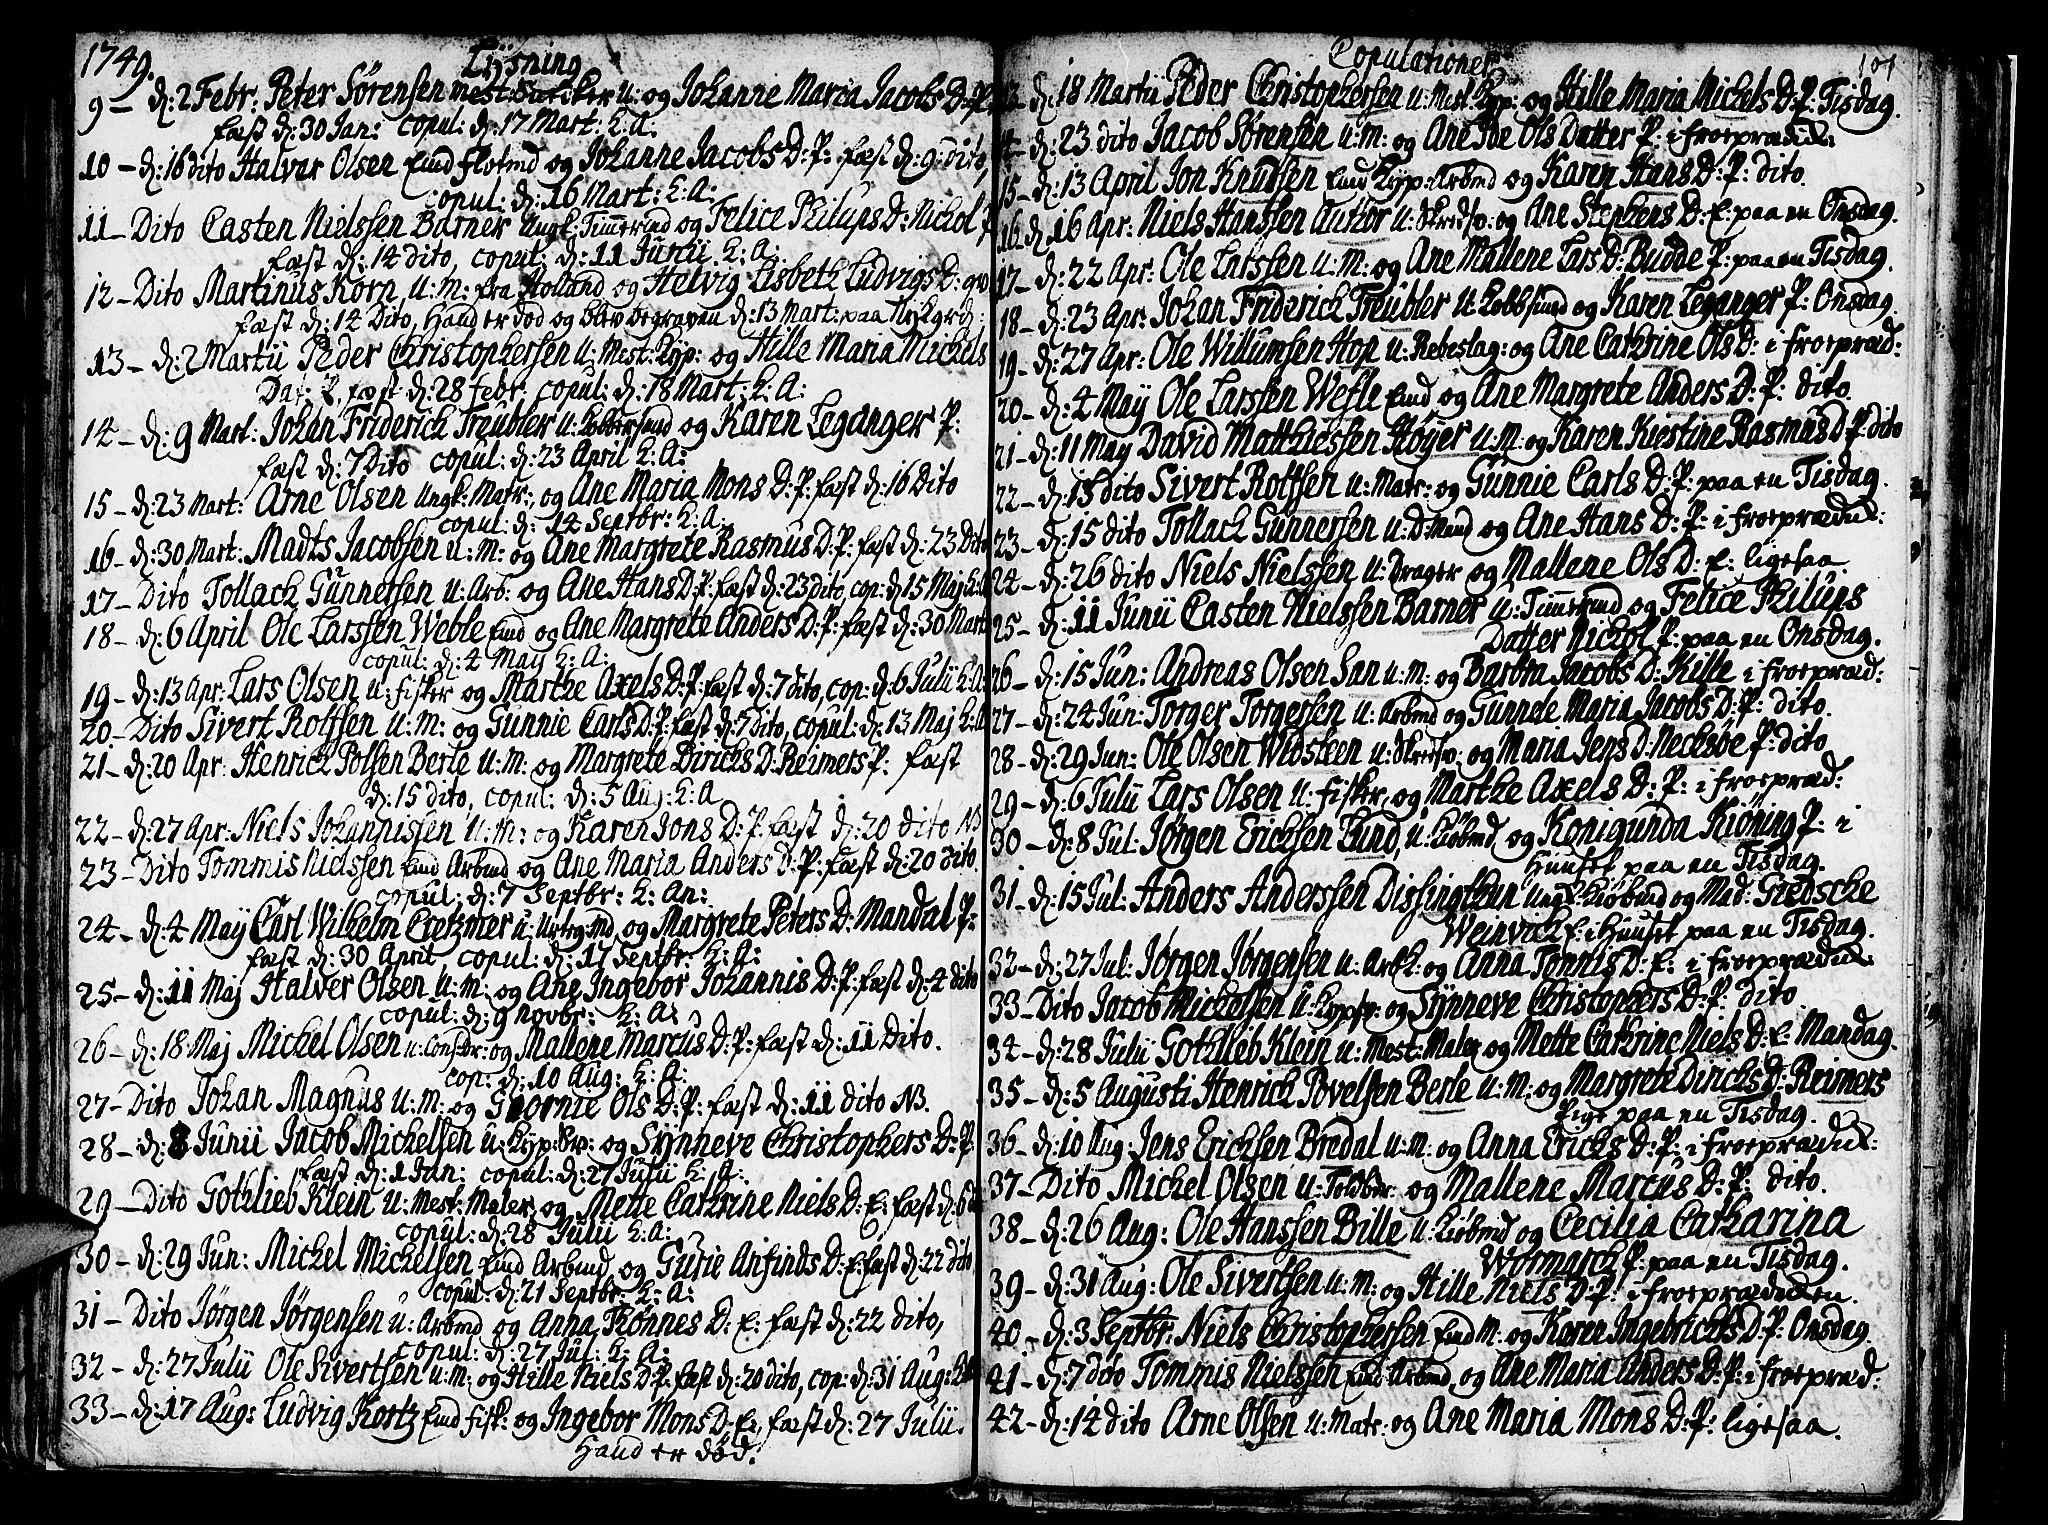 1749.
Lysning
9 - d: 2 Febr: Peter Sørensen u: og Johanne Maria Jacobs D: P:
fæst d: 30 Jan: copul: d: 17 Mart: k: A:
10 - d: 16 dito Halvar Olsen Emd og Johanne Jacobs D: P: fæst d: 9 dito,
copul: d: 16 Mart: k: A:
11 - Dito Casten Nielssen Barner Ungk: Timmermd og Felice Philups D: Nichol P
fæst d: 14 dito, copul: d: 11 Junii k: A:
12 - Dito Martinus Korn, u: m: fra Holland og Helvig Lisbeth Ludvigs D:
fæst d: 14 Dito, Hand er død og blev begraven d: 13 Mart: paa
13 - d: 2 Martii Peder Christophersen u: Mest: Kyp: og Hille Maria Michels
Dat: P, fæst d: 28 febr: copul: d: 18 Mart: k: A:
14 - d: 9 Mart: Johan Friderich Treubler u: og Karen Leganger P:
fæst d: 7 Dito copul: d: 23 April k: A:
15 - d: 23 Mart: Arne Olsen Ungk: Matr:, og Ane Maria Mons D: P: fæst d: 16 Dito
copul: d: 14 Septbr: k: A:
16 - d: 30 Mart: Madts Jacobsen u: m: og Ane Margrete Rasmus D: P: fæst d: 23 Dito
17 - Dito Tollach Gunnersen u: Arb: og Ane Hans D: P: fæst d: 23 dito, cop: d: 15 Maj k: A
18 - d: 6 April Ole Larssen Weble Emd og Ane Margrete Anders D: P: fæst d: 30 Mart
copul: d: 4 May k: A:
19 - d: 13 Apr: Lars Olsen u: fisker og Marthe Axels D: P: fæst d: 7 dito, cop: d: 6 Julii k: A:
20 - Dito Sivert Rolfsen u: m: og Gunnie Carls D: P: fæst d: 7 Dito, copul: d: 13 Maj k: A
21 - d: 20 Apr: Henrich Polsen Berle u: m: og Margrete Dirichs D: Reimers P: fæst
d: 15 dito, copul: d: 5 Aug: k: A
22 - d: 27 Apr: Niels Johannissen u: m: og Karen Jons D: P: fæst d: 20 dito NB
23 - Dito Tommis Nielssen Emd Arbmd og Ane Maria Anders D: P: fæst d: 20 dito.
copul: d: 7 Septbr: k: An:
24 - d: 4 May Carl Wilhelm Cretzmer u: og Margrete Peters D: Mandal P:
fæst d: 30 April copul: d: 17 Septbr: k: A:
25 - d: 11 Maj Halver Olsen u: m: og Ane Ingebor Johannis D: P: fæst d: 4 dito
copul: d: 9 Novbr: k: A:
26 - d: 18 Maj Michel Olsen u: og Mallene Marcus D: P: fæst d: 11 Dito.
cop: d: 10 Aug: k: A:
27 - Dito Johan Magnus u: m: og Ols D: P: fæst d: 11 dito NB.
28 - d: 8 Junii Jacob Michelsen u: og Synneve Christophers D: P
fæst d: 1 Jan: copul: d: 27 Julii k: A:
29 - Dito Gothlieb Klein u: Mest: Maler, og Mette Cathrine Niels D: E: fæst d: 6
copul: d: 28 Julii k: A:
30 - d: 29 Jun: Michel Michelsen Emd Arbmd og Gurie Anfinds D: E: fæst d: 22 dito
copul: d: 21 Septbr: k: A:
31 - Dito Jørgen Jørgensen u: Arbmd og Anna Tønnes D: E: fæst d: 22 dito,
copul: d: 27 Jul: k: A:
32 - d: 27 Julii Ole Sivertsen u: m: og Hille Niels D: P: fæst d: 20 dito, cop: d: 31 Aug: k: A
33 - d: 17 Aug: Ludvig Kortz Emd fisk: og Ingebor Mons D: E:, fæst d: 27 Julii.
Hand er død.
Copulationer
101
13 d: 18 Martii Peder Christophersen u: Mest: Kyp: og Hille Maria Michels D: P: Tisdag.
14 - d: 23 dito Jacob Sørensen u: m: og Ane Ols Datter P: i froepræd:
15 - d: 13 April Jon Knudsen Emd Kyp: Arbmd og Karen Hans D: P: dito.
16 d: 16 Apr: Niels Hanssen Author u: Skredsv: og Ane Stephens D: E: paa en Onsdag.
17 - d: 22 Apr: Ole Larssen u: m: og Ane Mallene Lars D: Budde P: paa en Tisdag.
18 - d: 23 Apr: Johan Friderich Treubler u: og Karen Leganger P: Onsdag.
19 - d: 27 Apr: Ole Willumsen Hop u: Rebeslag: og Ane Cathrine Ols D: i froepræd:
20 - d: 4 May Ole Larssen Wefle Emd og Ane Margrete Anders D: P: dito.
21 - d: 11 May David Matthiessen Høyer u: m: og Karen Kiestine Rasmus D P: dito
22 - d: 13 dito Sivert Rolfsen u: Matr: og Gunnie Carls D: P: paa en Tisdag.
23 - d: 15 dito Tollach Gunnersen u: D: Mand og Ane Hans D: P: i froeprædik:
24 - d: 26 dito Niels Nielssen u: Drager og Mallene Ols D: E: ligesaa.
25 - d: 11 Junii Casten Nielssen Barner u: Timmermd og Felice Philups
Datter Nichol P: paa en Onsdag.
26 - d: 15 Jun: Andreas Olsen San u: m: og Barbra Jacobs D: Kille i froepræd:
27 - d: 24 Jun: Torger Torgersen u: Arbmd og Gunnele Maria Jacobs D: P: dito.
28 - d: 29 Jun: Ole Olsen Widsteen u: Skredsv: og Maria Jens D: Necksøe P: dito
29 - d: 6 Julii Lars Olsen u: fisker, og Marthe Axels D: P: i froepræd:
30 - d: 8 Jul: Jørgen Erichsen Lund, u: Kiøbmd og Konigunda Kiøning P: i
Huuset paa en Tisdag.
31 - d: 15 Jul: Anders Anderssen Dissingthun Ungk: Kiøbmd og Mad: Giedsche
Weinvich E: i Huuset paa en Tisdag.
32 - d: 27 Jul: Jørgen Jørgensen u: Arbk: og Anna Tønnis D: E: i froeprædik:
33 - Dito Jacob Michelsen u: og Synneve Christophers D: P: dito.
34 - d: 28 Julii Gothlieb Klein u: Mest: Maler og Mette Cathrine Niels D: E: Mandag.
35 - d: 5 Augusti Henrich Povelsen Berle u: m: og Margrete Dirichs D: Reimers
paa en Tisdag.
36 - d: 10 Aug: Jens Erichsen Bredal u: m: og Anna Erichs D: P: i froeprædik:
37 - Dito Michel Olsen u: Toldbr: og Mallene Marcus D: P: dito.
38 - d: 26 Aug: Ole Hanssen Bille u: Kiøbmd og Cecilia Catharina
Wormarch P: paa en Tisdag.
39 - d: 31 Aug: Ole Sivertsen u: m: og Hille Niels D: P: i froeprædiken.
40 - d: 3 Septbr: Niels Christophersen Emd M: og Karen Ingebrichts D: P: Onsdag.
41 - d: 7 dito Tommis Nielssen Emd Arbmd, og Ane Maria Anders D: P: i froepræd:
42 - d: 14 dito Arne Olsen u: Matr: og Ane Maria Mons D: P: ligesaa.